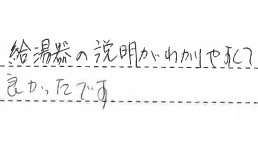 給湯器の説明がわかりやすくて
良かったです